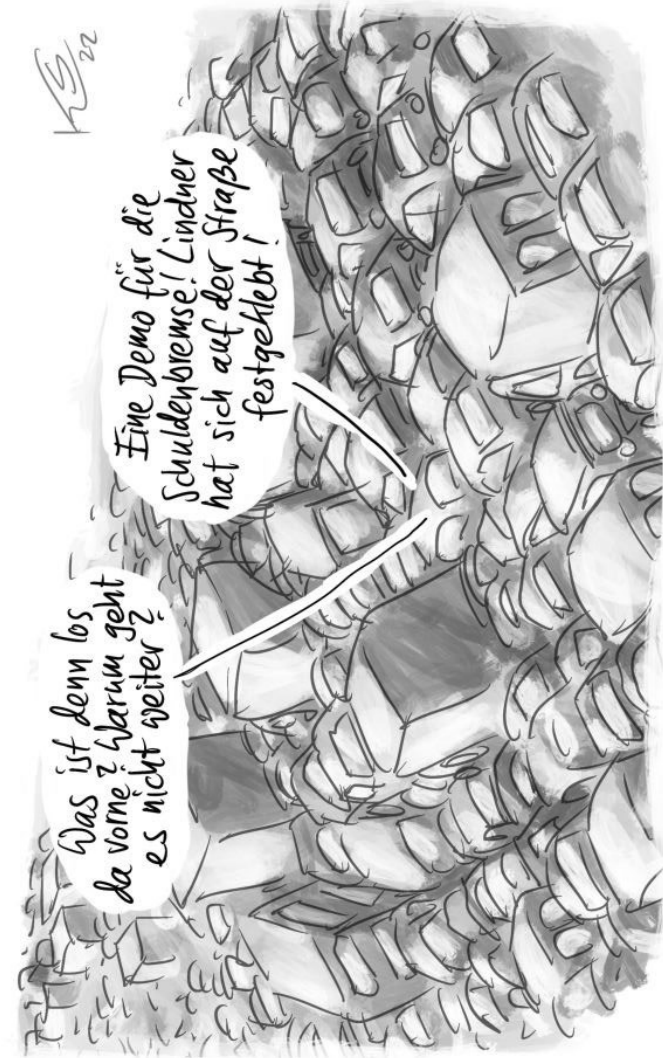 Was ist denn los
da vorne? Warum geht
es nicht weiter?
Eine Demo für die
Schuldenbremse! Lindner
hat sich auf der Straße
festgeklebt!
22